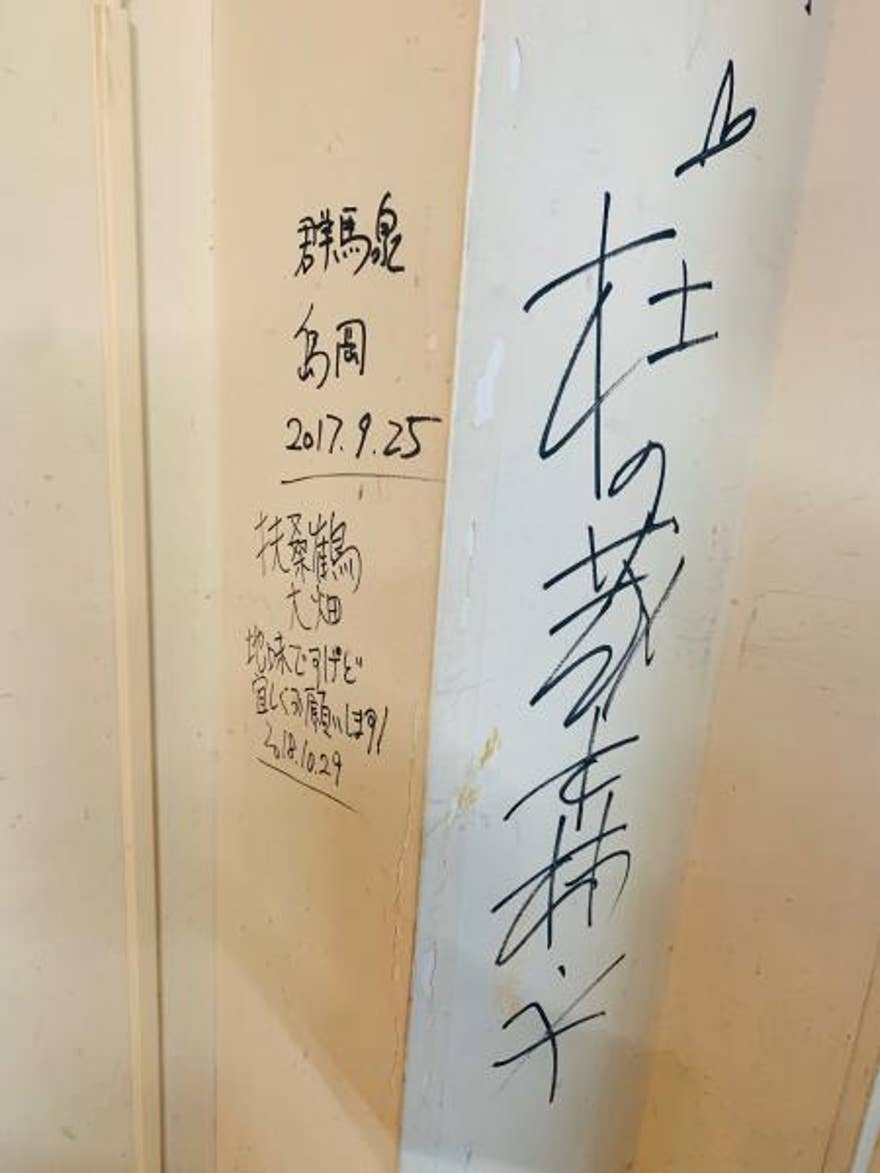 群馬泉
島岡
2017.9.25
扶桑鶴
大畑
地味ですけど
宜しくお願いします!
2018.10.29
杜の蔵